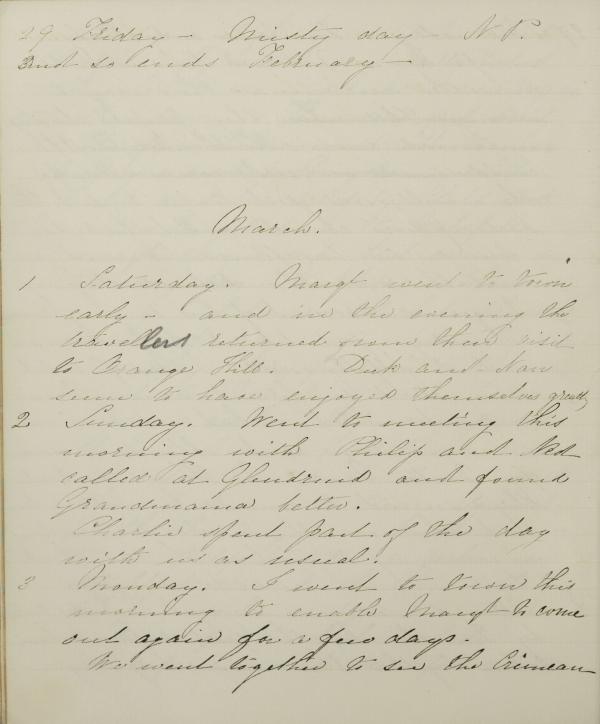 29 Friday - Misty day - N.P.
and so ends February -
March.
1 Saturday. Margt went to town
early - and in the evening the
travellers returned from their visit
to Orange Hill. Dick and Nan
seem to have enjoyed themselves greatly
2 Sunday. Went to meeting this
morning with Philip and Ned
called at Glendruid and found
Grandmama better.
Charlie spent part of the day
with us as usual.
3 Monday. I went to town this
morning to enable Margt to come
out again for a few days.
We went together to see the Crimean